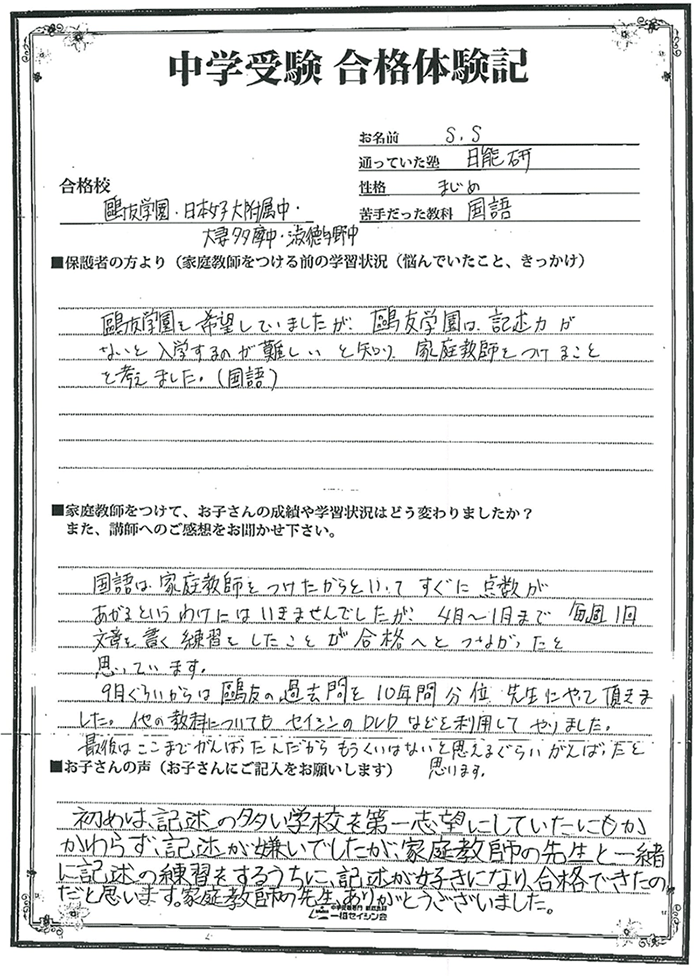 中学受験 合格体験記
お名前 S.S
通っていた塾 日能研
性格 まじめ
苦手だった教科 国語
合格校
鷗友学園・日本女子大附属中・
大妻多摩中・淑徳与野中
■保護者の方より（家庭教師をつける前の学習状況（悩んでいたこと、きっかけ）
鷗友学園を希望していましたが、鷗友学園は、記述力が
ないと入学するのが難しいと知り、家庭教師をつけること
を考えました。（国語）
■家庭教師をつけて、お子さんの成績や学習状況はどう変わりましたか？
また、講師へのご感想をお聞かせ下さい。
国語は、家庭教師をつけたからといってすぐに点数が
あがるというわけにはいきませんでしたが、4月～1月まで毎週1回
文章を書く練習をしたことが合格へとつながったと
思っています。
9月ぐらいからは鷗友の過去問を10年間分位、先生にやって頂きま
した。他の教科についても、セイシンのDVDなどを利用してやりました。
最後はここまでがんばったんだからもうくいはないと思えるぐらいがんばったと
思います。
■お子さんの声（お子さんにご記入をお願いします）
初めは、記述の多い学校を第一志望にしていたにもか
かわらず、記述が嫌いでしたが、家庭教師の先生と一緒
に記述の練習をするうちに、記述が好きになり、合格できたの
だと思います。家庭教師の先生、ありがとうございました。
中学受験専門 家庭教師
一橋セイシン会